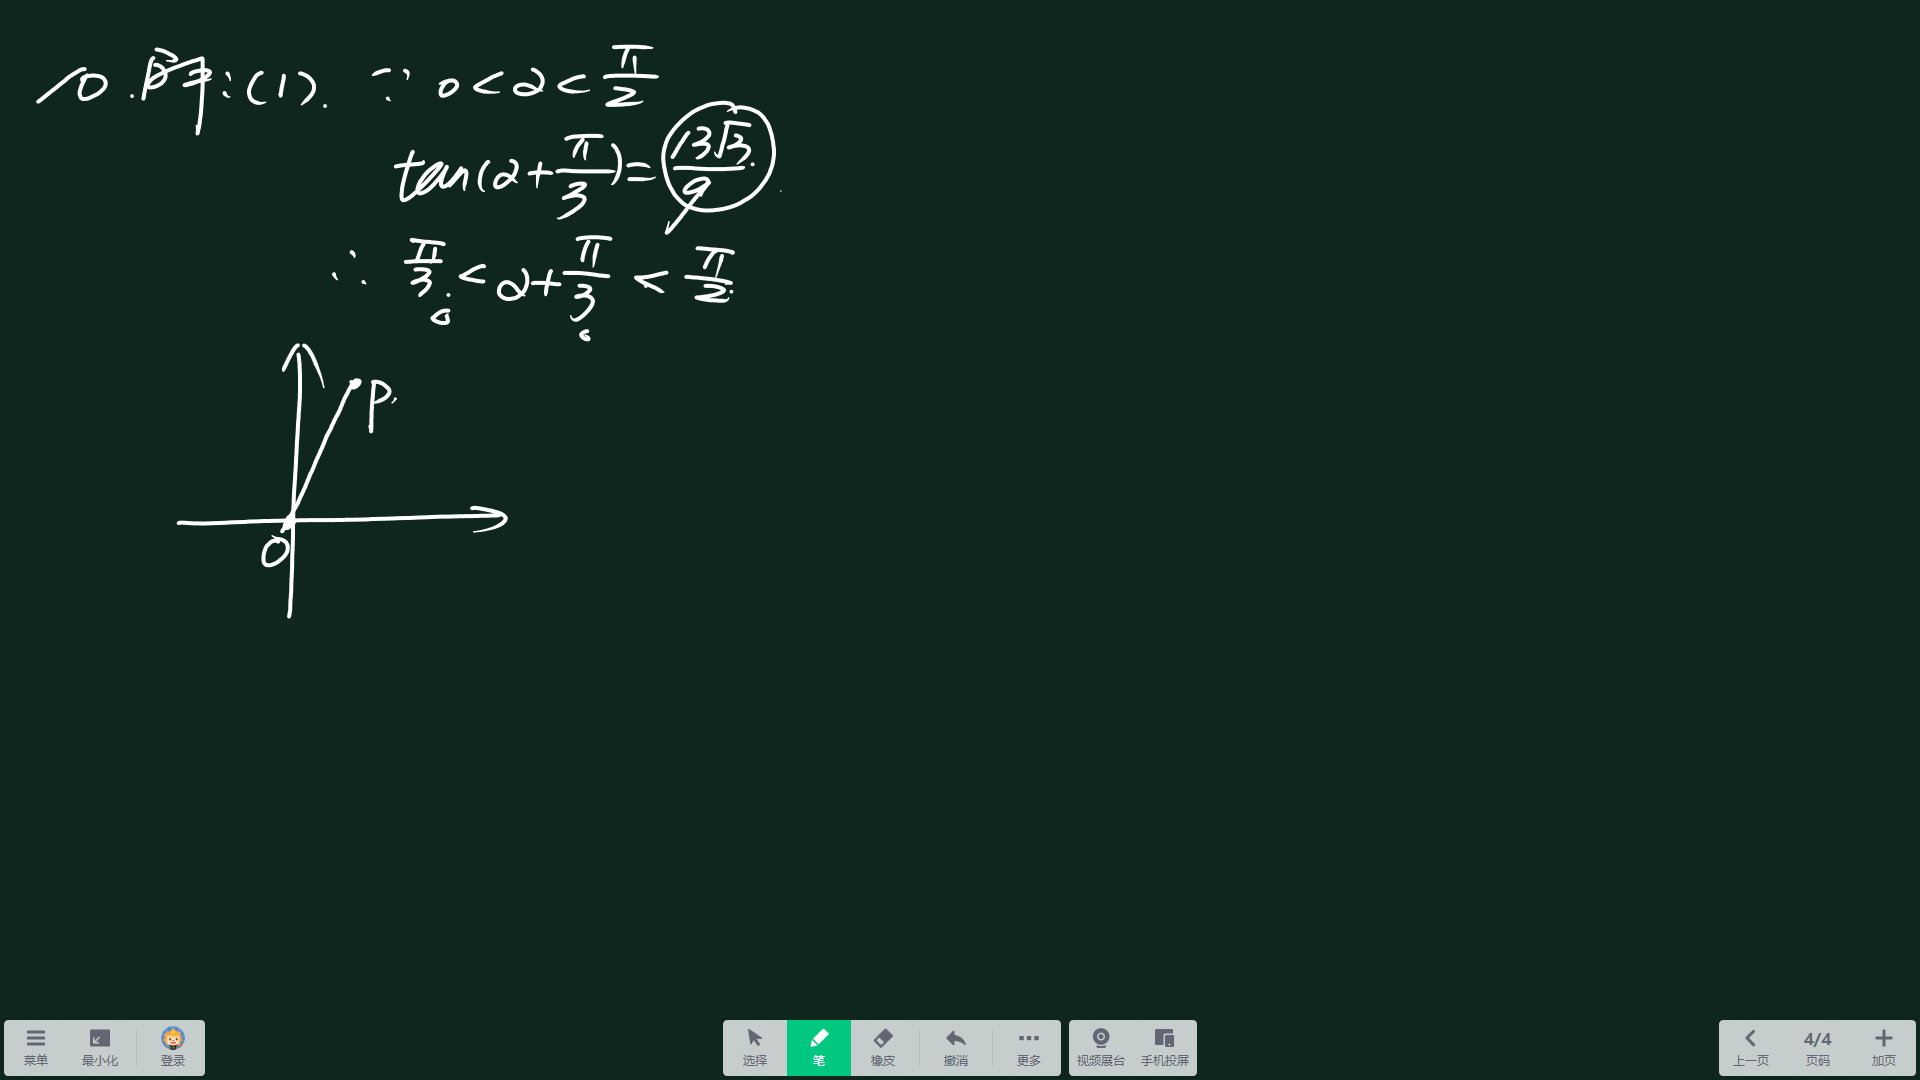 10.解:(1). ∵ 0<α<π/2
tan(α+π/3)=13√3/9
∴ π/3<α+π/3<π/2
P
O
菜单 最小化 登录 选择 笔 橡皮 撤消 更多 视频展台 手机投屏 上一页 4/4 页码 加页